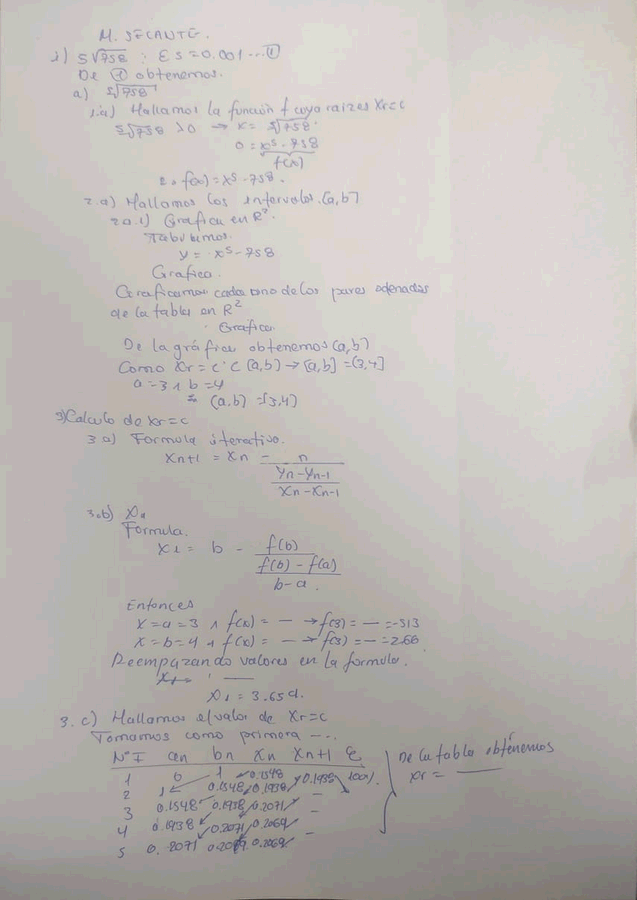 M. SECANTE.
1) 5√758 : ES = 0.001 ... ①
De ① obtenemos.
a) 5√758
1.a) Hallamos la función f cuya raiz es Xr=c
5√758 >0 → x = 5√758.
0 = x5 - 758
f(x)
f(x) = x5 - 758.
2.a) Hallamos los intervalos. [a,b]
2a.1) Grafica en R2.
Tabulamos.
y = x5 - 758
Grafica.
Graficamos cada uno de los pares ordenados
de la tabla en R2
Grafica
De la gráfica obtenemos (a,b)
Como Xr = c ⊂ (a,b) → [a,b] = [3,4]
a = 3 ∧ b = 4
(a.b) = [3,4)
3) Calculo de xr = c
3 a) Formula iterativo.
Xn+1 = Xn - n
Yn - Yn-1
Xn - Xn-1
3.b)
Formula.
X1 = b - f(b)
f(b) - f(a)
b - a.
Entonces
X = a = 3 ∧ f(x) = — → f(3) = — = -513
X = b = 4 ∧ f(x) = — → f(3) = — = 266
Reempazando valores en la formula.
X1 = —
X1 = 3.659.
3. c) Hallamos el valor de Xr = c
Tomamos como primera — ..
N° I an bn Xn Xn+1 E
1 0 1 0.1548 0.1938 100%
2 1 0.1548 0.1938 —
3 0.1548 0.1938 0.2071 —
4 0.1938 0.2071 0.2069 —
5 0.2071 0.2069 0.2069
De la tabla obtenemos
xr = —